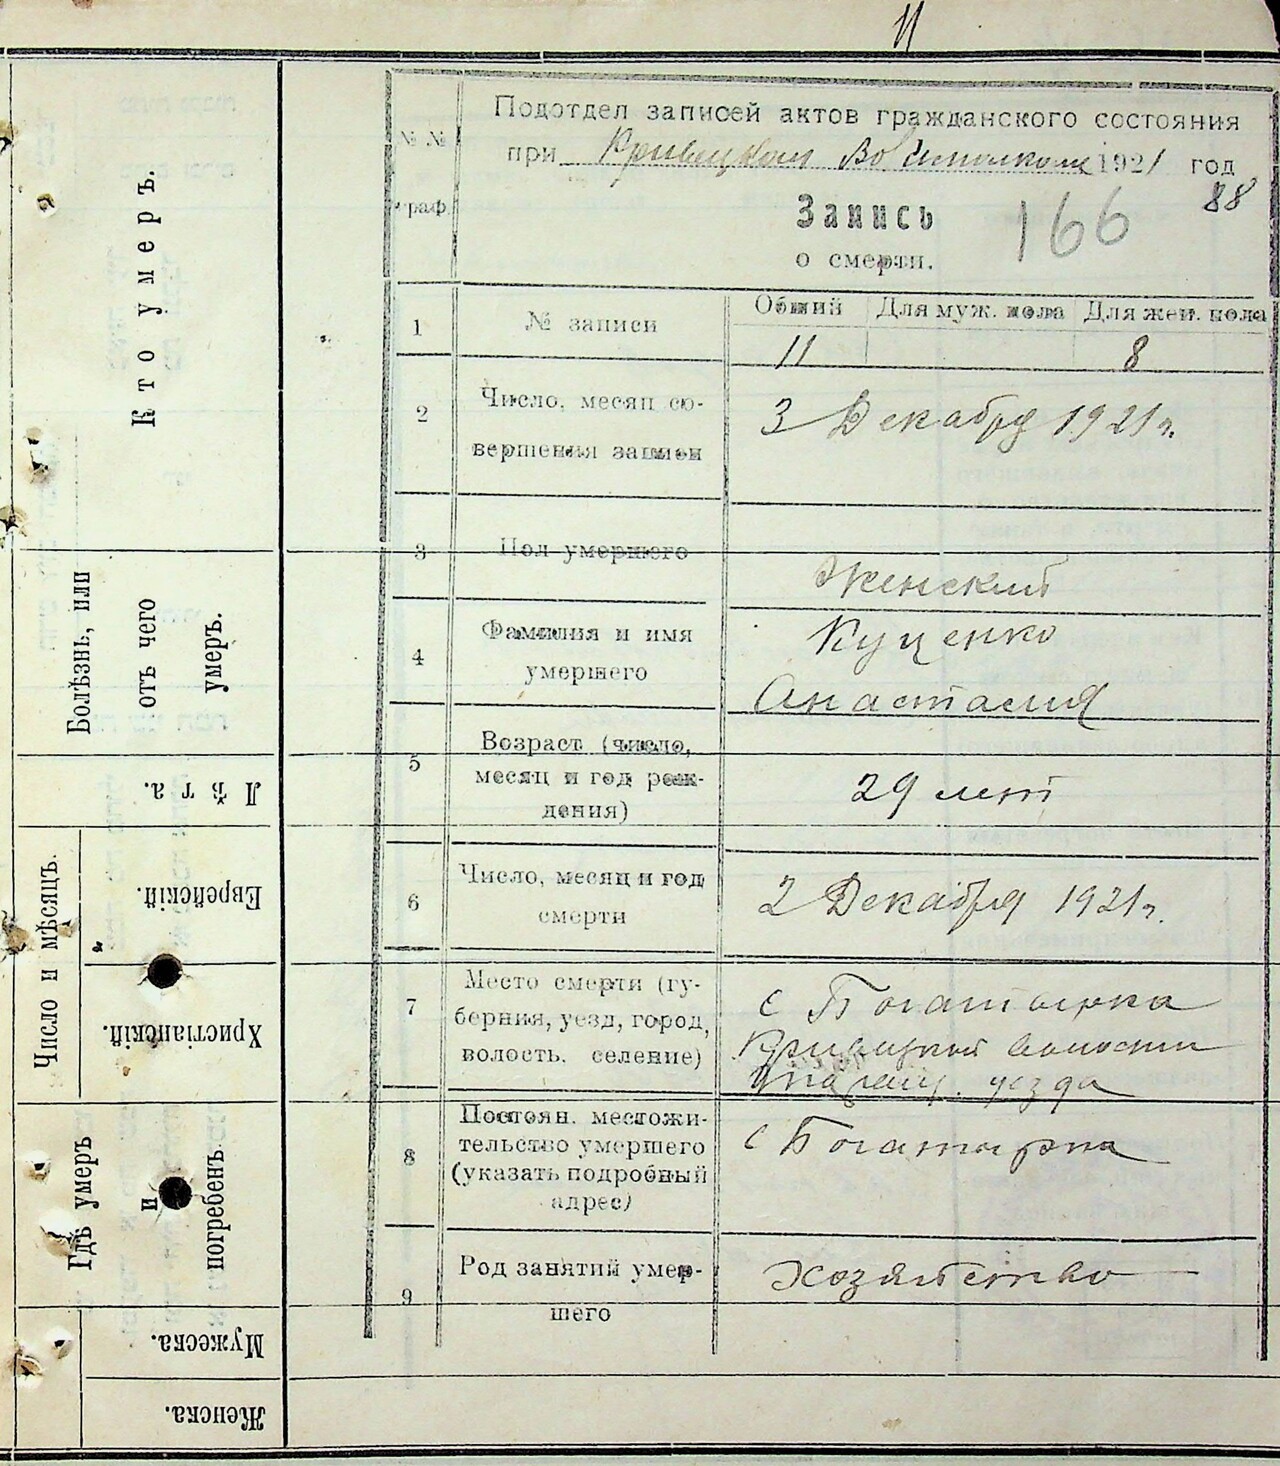 11
Подотдел записей актов гражданского состояния
при Кривицком Волисполкоме 1921 год
88
№№ граф
Запись 166
о смерти.
1 № записи Общий Для муж. пола Для жен. пола
11 8
2 Число, месяц со-
вершения записи
3 Декабря 1921 г.
3 Пол умершего
Женский
4 Фамилия и имя
умершего
Куценко
Анастасия
5 Возраст (число,
месяц и год рож-
дения)
29 лет
6 Число, месяц и год
смерти
2 Декабря 1921 г.
7 Место смерти (гу-
берния, уезд, город,
волость, селение)
с Богатырка
Кривицкой волости
уезда
8 Постоян. местожи-
тельство умершего
(указать подробный
адрес)
с Богатырка
9 Род занятий умер-
шего
Хозяйство
Кто умеръ.
Болѣзнь, или
отъ чего
умеръ.
Лѣта.
Число и мѣсяцъ.
Еврейскій.
Христіанскій.
Гдѣ умеръ
и
погребенъ
Мужеска.
Женска.